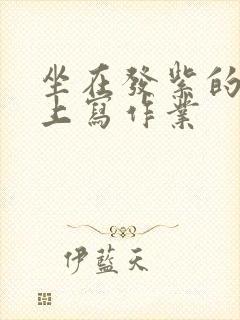 坐在發紫的
上寫作業
伊藍天